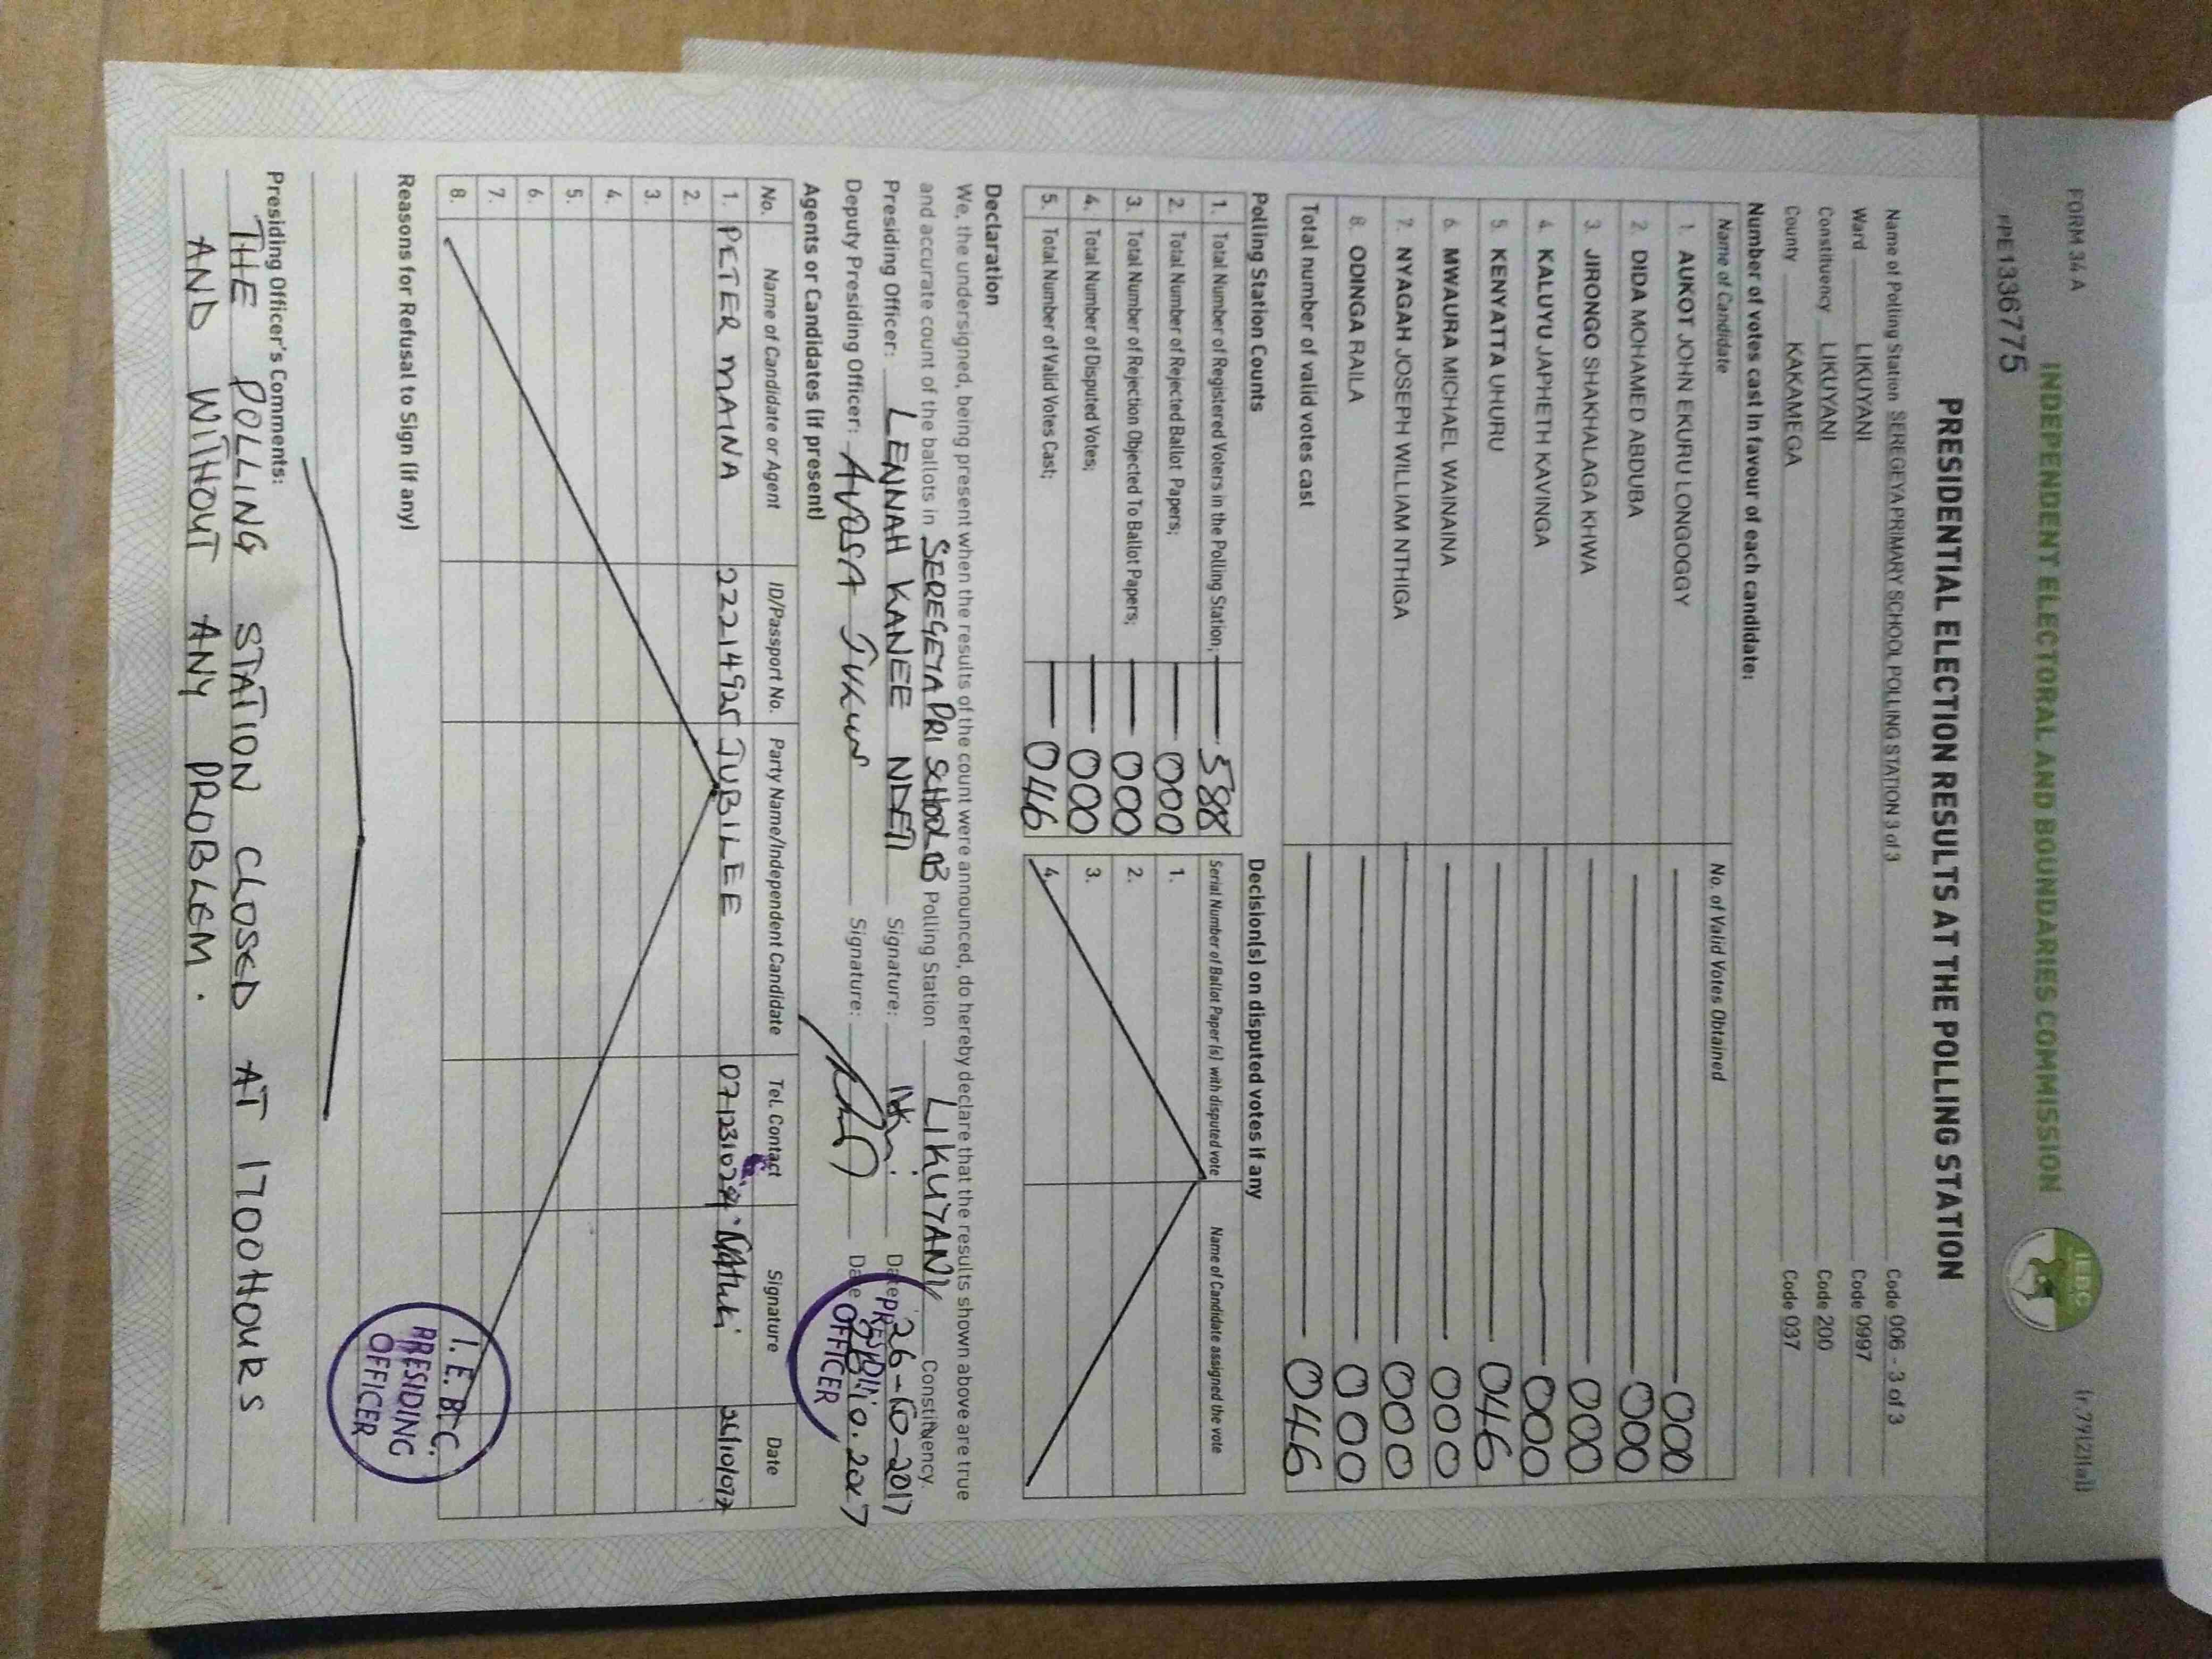 FORM 34 A
(r.79(2)(a))
PPE1336775
INDEPENDENT ELECTORAL AND BOUNDARIES COMMISSION
IEBC
PRESIDENTIAL ELECTION RESULTS AT THE POLLING STATION
Name of Polling Station SEREGEYA PRIMARY SCHOOL POLLING STATION 3 of 3 Code 006 - 3 of 3
Ward LIKUYANI Code 0997
Constituency LIKUYANI Code 200
County KAKAMEGA Code 037
Number of votes cast in favour of each candidate:
Name of Candidate No. of Valid Votes Obtained
1. AUKOT JOHN EKURU LONGOGGY 000
2. DIDA MOHAMED ABDUBA 000
3. JIRONGO SHAKHALAGA KHWA 000
4. KALUYU JAPHETH KAVINGA 000
5. KENYATTA UHURU 046
6. MWAURA MICHAEL WAINAINA 000
7. NYAGAH JOSEPH WILLIAM NTHIGA 000
8. ODINGA RAILA 000
Total number of valid votes cast 046
Polling Station Counts
1. Total Number of Registered Voters in the Polling Station; 588
2. Total Number of Rejected Ballot Papers; 000
3. Total Number of Rejection Objected To Ballot Papers; 000
4. Total Number of Disputed Votes; 000
5. Total Number of Valid Votes Cast; 046
Decision(s) on disputed votes if any
Serial Number of Ballot Paper(s) with disputed vote Name of Candidate assigned the vote
1.
2.
3.
4.
Declaration
We, the undersigned, being present when the results of the count were announced, do hereby declare that the results shown above are true
and accurate count of the ballots in SEREGEYA PRI SCHOOL Polling Station LIKUYANI Constituency.
Presiding Officer: LENNAH KANEE NDETI Signature: Date: 26-10-2017
Deputy Presiding Officer: Signature: Date
PRESIDING
OFFICER
Agents or Candidates (if present)
No. Name of Candidate or Agent ID/Passport No. Party Name/Independent Candidate Tel. Contact Signature Date
1. PETER MAINA JUBILEE
2.
3.
4.
5.
6.
7.
8.
I.E.B.C.
PRESIDING
OFFICER
Reasons for Refusal to Sign (if any)
Presiding Officer's Comments:
THE POLLING STATION CLOSED AT 1700HOURS
AND WITHOUT ANY PROBLEM.